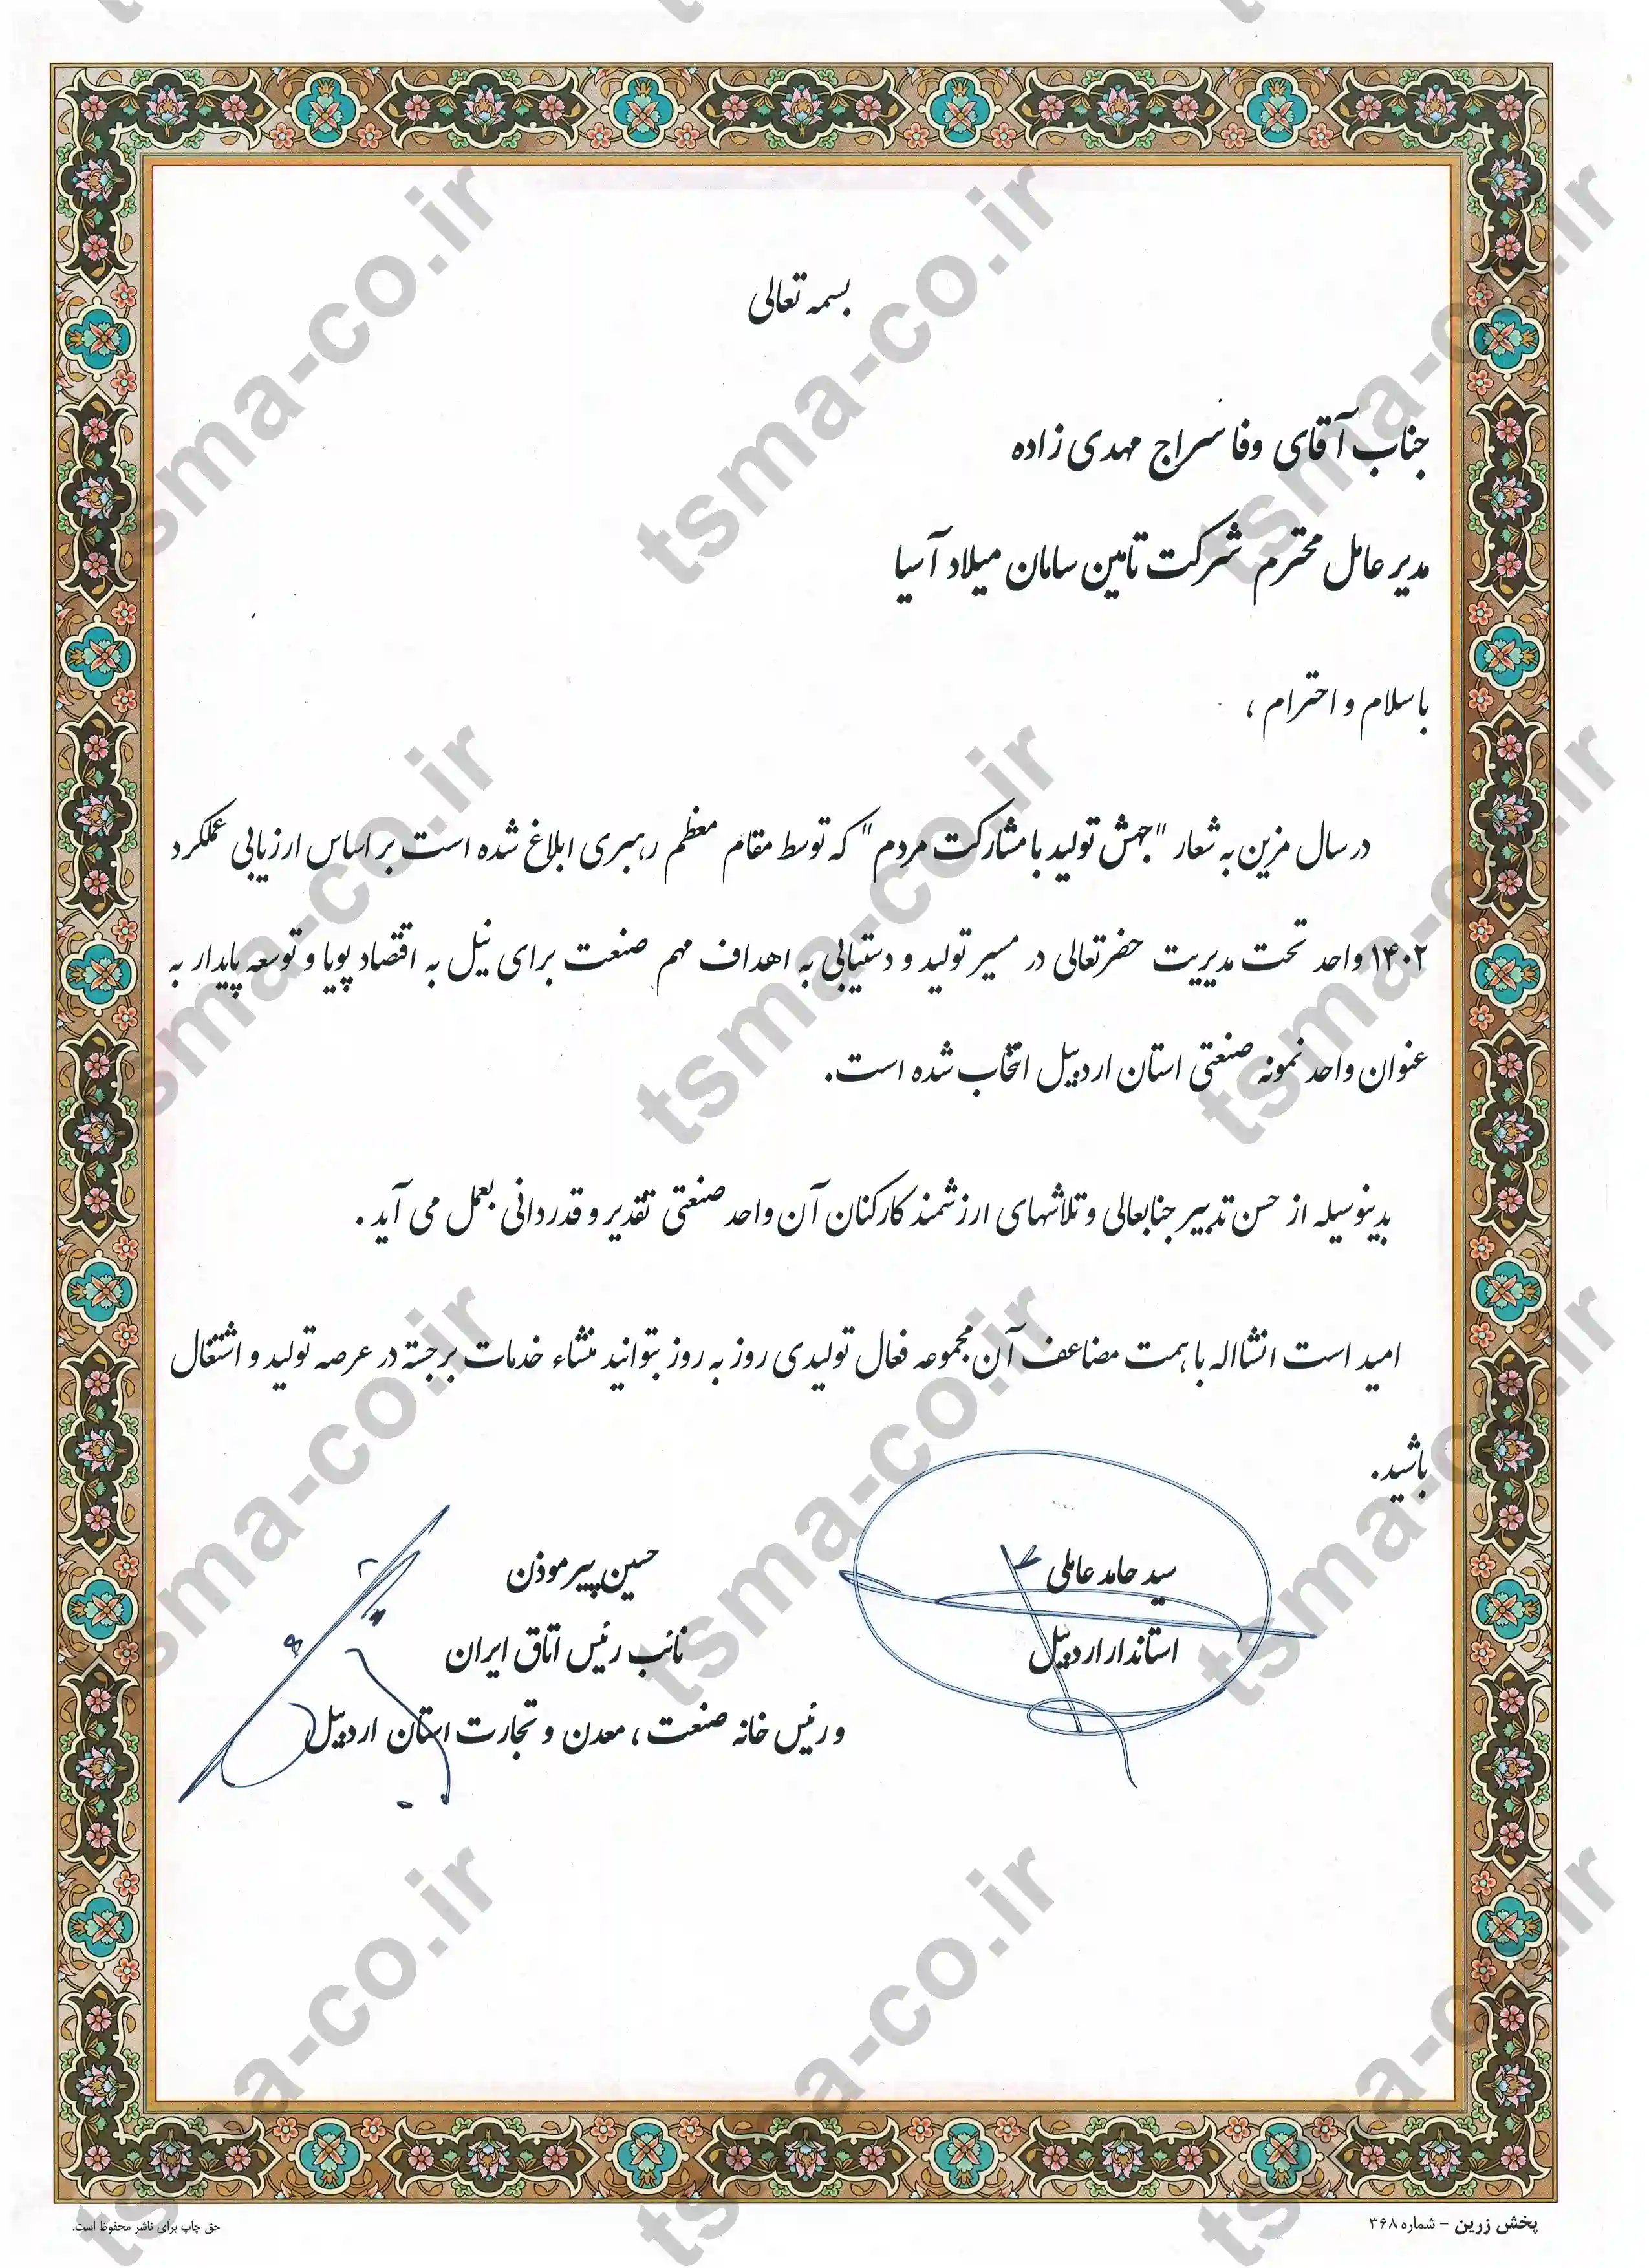 بسمه تعالی
جناب آقای وفا سراج مهدی زاده
مدیر عامل محترم شرکت تامین سامان میلاد آسیا
با سلام و احترام ،
در سال مزین به شعار "جهش تولید با مشارکت مردم" که توسط مقام معظم رهبری ابلاغ شده است بر اساس ارزیابی عملکرد
۱۴۰۲ واحد تحت مدیریت حضرتعالی در مسیر تولید و دستیابی به اهداف مهم صنعت برای نیل به اقتصاد پویا و توسعه پایدار به
عنوان واحد نمونه صنعتی استان اردبیل انتخاب شده است.
بدینوسیله از حسن تدبیر جنابعالی و تلاشهای ارزشمند کارکنان آن واحد صنعتی تقدیر و قدردانی بعمل می آید .
امید است انشااله با همت مضاعف آن مجموعه فعال تولیدی روز به روز بتوانید منشاء خدمات برجسته در عرصه تولید و اشتغال
باشید.
سید حامد عاملی
استاندار اردبیل
حسین پیرموذن
نائب رئیس اتاق ایران
و رئیس خانه صنعت ، معدن و تجارت استان اردبیل
پخش زرین - شماره ۳۶۸
حق چاپ برای ناشر محفوظ است.
tsma-co.ir